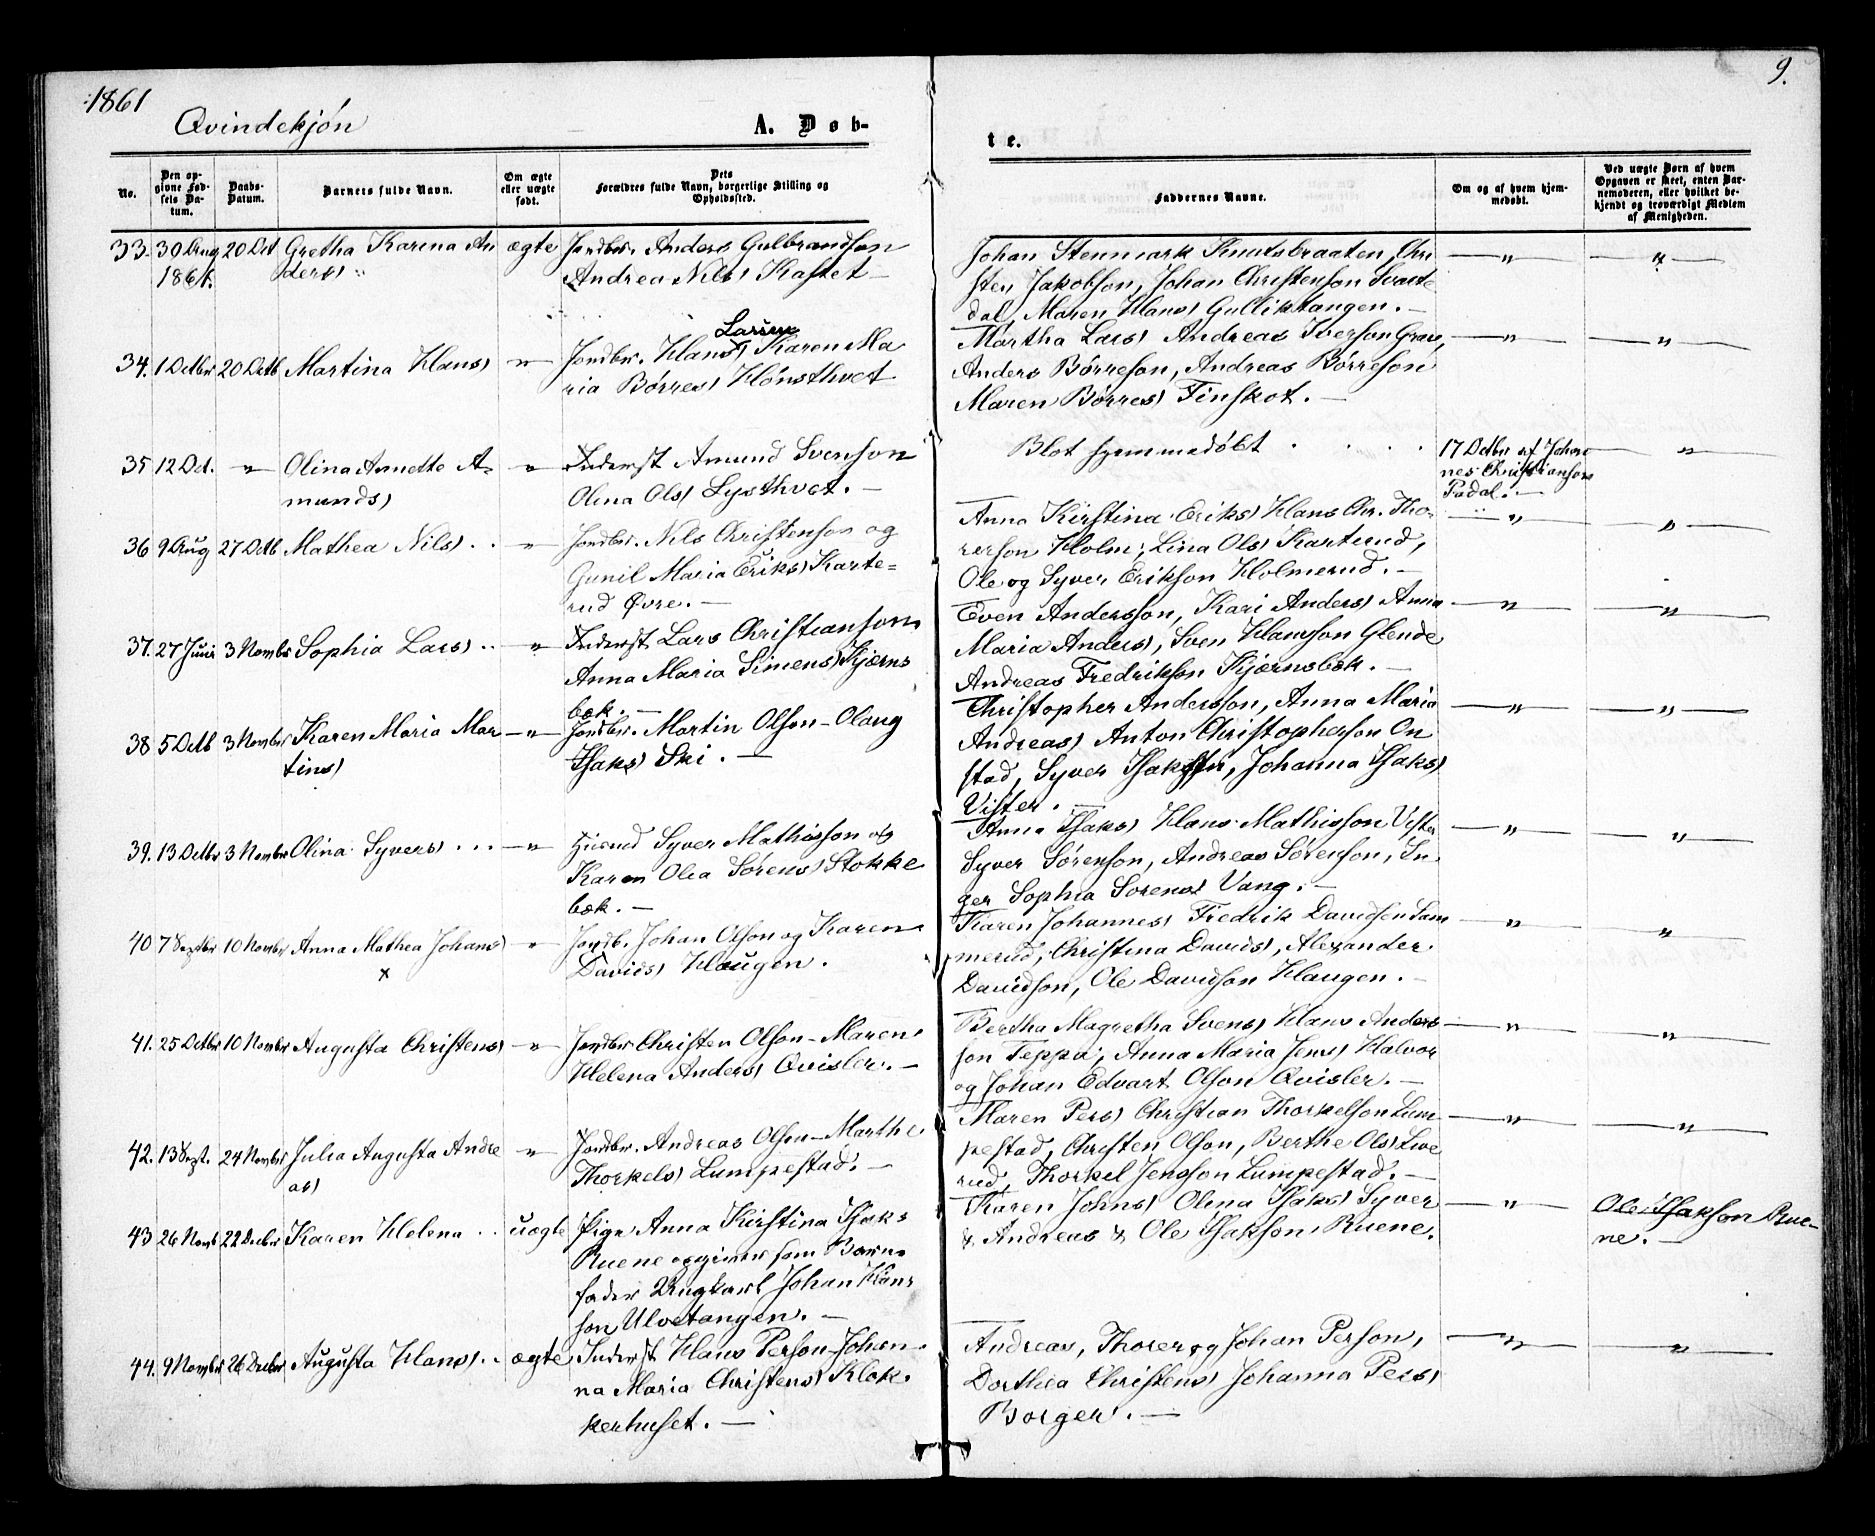 1861
9.
Qvindekjøn
A. Døb-
te.
No.
Den op-
givne Fød-
sels Da-
tum.
Daabs-
Datum.
Barnets fulde Navn.
Om ægte
eller uægte
født.
Dets
Forældres fulde Navn, borgerlige Stilling og
Opholdssted.
Faddernes Navne.
Om og af hvem hjem-
medøbt.
Ved uægte Børn af hvem
Opgaven er skeet, enten Bar-
nemoderen, eller hvilket be-
kjendt og troværdigt Medlem
af Menigheden.
33. 30 Aug 20 Oct Gretha Karina An ægte Jordbr. Anders Gulbrandson
1861. ders) Andrea Nils) Kastet —
Johan Stenmark Knutsbraaten, Chri — " — — " —
sten Jakobson, Johan Christenson Svarte
dal, Maren Hans) Gulliktangen. —
Larsen
34. 1 Octbr 20 Octb Martina Hans) — " — Jordbr. Hans) Karen Ma
ria Børres) Hønsthvet
Martha Lars) Andreas Iverson Grav, — " — — " —
Anders Børreson, Andreas Børreson
Maren Børres) Finskot. —
35 12 Oct. — " — Olina Annette A= — " — Inderst Amund Svenson
munds) Olina Ols) Lysthvet. —
Blot hjemmedøbt . . . . 17 Octbr af Johan — " —
nes Christianson
Padal. —
36 9 Aug 27 Octb Mathea Nils) . . — " — Jordbr. Nils Christenson og
Gunil Maria Eriks) Karte=
rud Øvre. —
Anna Kirstina Eriks) Hans Chr. Tho- — " — — " —
rerson Holm, Lina Ols) Karterud,
Ole og Syver Erikson Holmerud. —
37. 27 Juni 3 Novbr Sophia Lars) . . — " — Inderst Lars Christianson
Anna Maria Simens) Kjerns
bæk. —
Even Andersson, Kari Anders) Anna — " — — " —
Maria Anders), Sven Hansson Glende
Andreas Fredrikson Kjernsbæk. —
38 5 Octb 3 Novbr Karen Maria Mar — " — Jordbr. Martin Olson — Olaug
tins) Isaks) Ski. —
Christopher Andersson, Anna Maria — " — — " —
Andreas) Anton Christopherson On
stad, Syver Isakson, Johanna Isaks)
Vister. —
39. 13 Octbr 3 Novbr Olina Syvers) . . . — " — Husmd Syver Mathisson og
Karen Olea Sørens) Stokke
bæk. —
Anna Isaks) Hans Mathisson Vister — " — — " —
Syver Sørenson, Andreas Sørenson, In
ger Sophia Sorens) Vang. —
40. 7 Septbr 10 Novbr Anna Mathea Johans) " Jordb. Johan Olson og Karen
x Davids) Haugen.
Karen Johannes) Fredrik Davidsen Lam — " — — " —
merud, Christina Davids), Alexander
Davidson, Ole Davidson Haugen. —
41. 25 Octbr 10 Novbr Augusta Christens) — " — Jordbr Christen Olson — Maren
Helena Anders) Qvisler. —
Bertha Magretha Svens) Hans Anders — " — — " —
son Teppa, Anna Maria Jens) Halvor
og Johan Edvart Olson Qvisler. —
42. 13 Sept. 24 Novbr Julia Augusta Andre — " — Jordbr. Andreas Olson — Marthe
as) Thorkels) Lumpestad. —
Maren Pers) Christian Thorkelson Lum — " — — " —
pestad, Christen Olson, Berthe Ols) Live
rud, Thorkel Jensson Lumpestad. —
43 26 Novb 22 Decbr Karen Helena . . uægte Pige Anna Kirstina Isaks
Ruene opgiver som Barne
fader Ungkarl Johan Hans
son Ulvetangen. —
Karen Johns) Olina Isaks) Syver — " — Ole Isakson Rue-
& Andreas & Ole Isakson, Ruene. ne. —
44. 9 Novbr 26 Decbr Augusta Hans) . . ægte Inderst Hans Person — Johan
na Maria Christens) Klok
kerhuset. —
Andreas, Thorer og Johan Person, — " — — " —
Dorthea Christens) Johanna Pers)
Borger. —